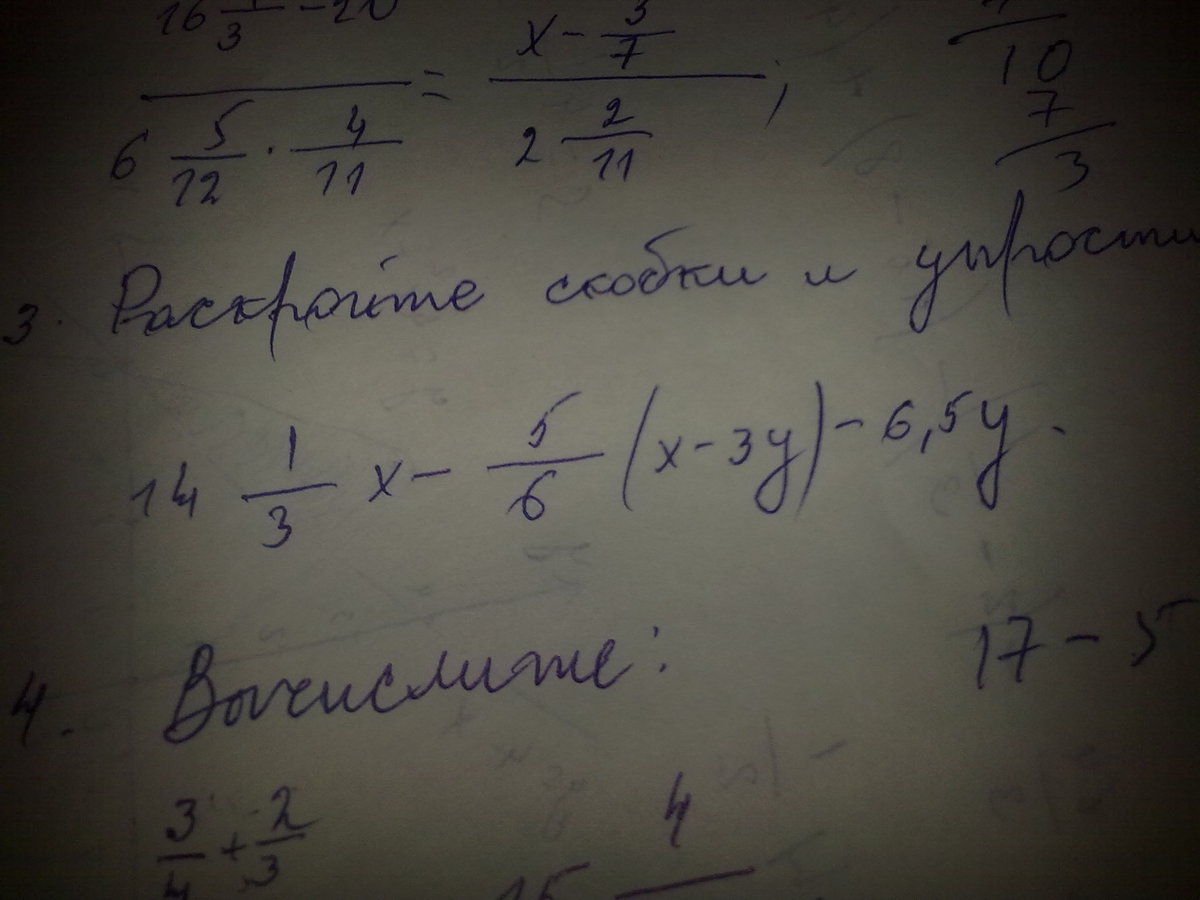 16 /3 - 20 x - 3/7
6 5/12 · 4/11 = 2 2/11 ; 10
7/3
3. Раскройте скобки и упрости
14 1/3 x - 5/6 (x - 3y) - 6,5y.
4. Вычислите: 17 - 5
3/4 + 2/3 15 4